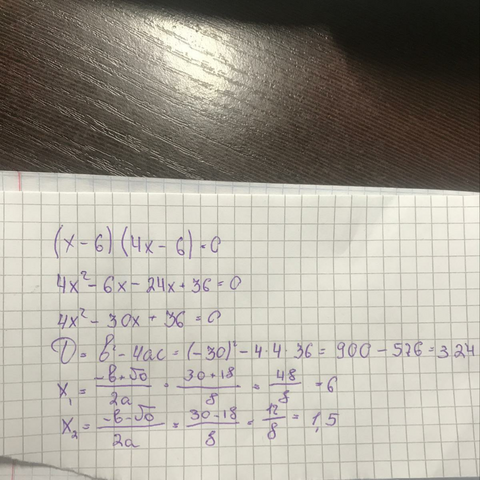 (x-6)(4x-6)=0
4x²-6x-24x+36=0
4x²-30x+36=0
D=b²-4ac=(-30)²-4·4·36=900-576=324
x₁=(-b+√D)/2a=(30+18)/8=48/8=6
x₂=(-b-√D)/2a=(30-18)/8=12/8=1,5